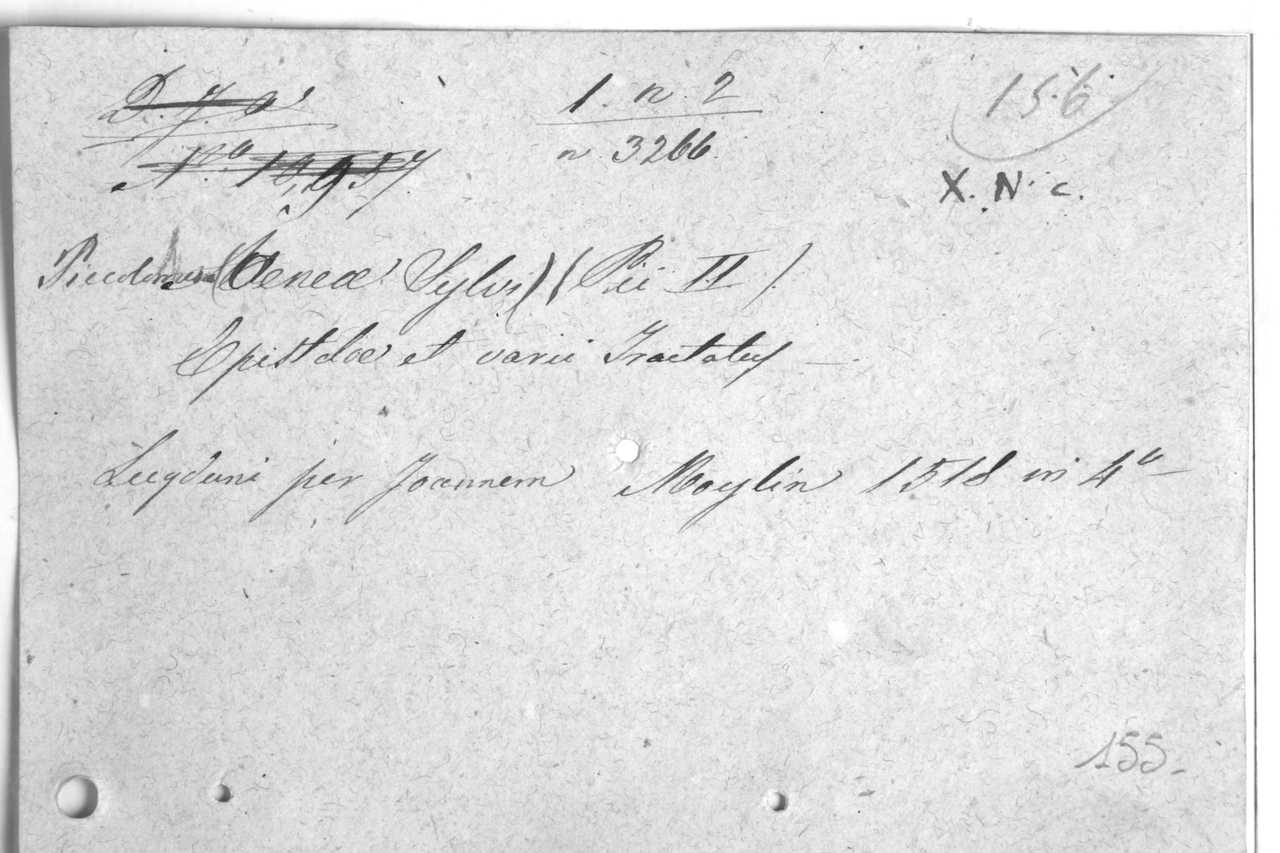 1. n. 2
156
n 3266.
X. N. c.
Piccolomini (Aeneae Sylvii) (Pii II)
Epistolae et varii Tractatus
Lugduni per Joannem Moylin 1518 in 4º
155.